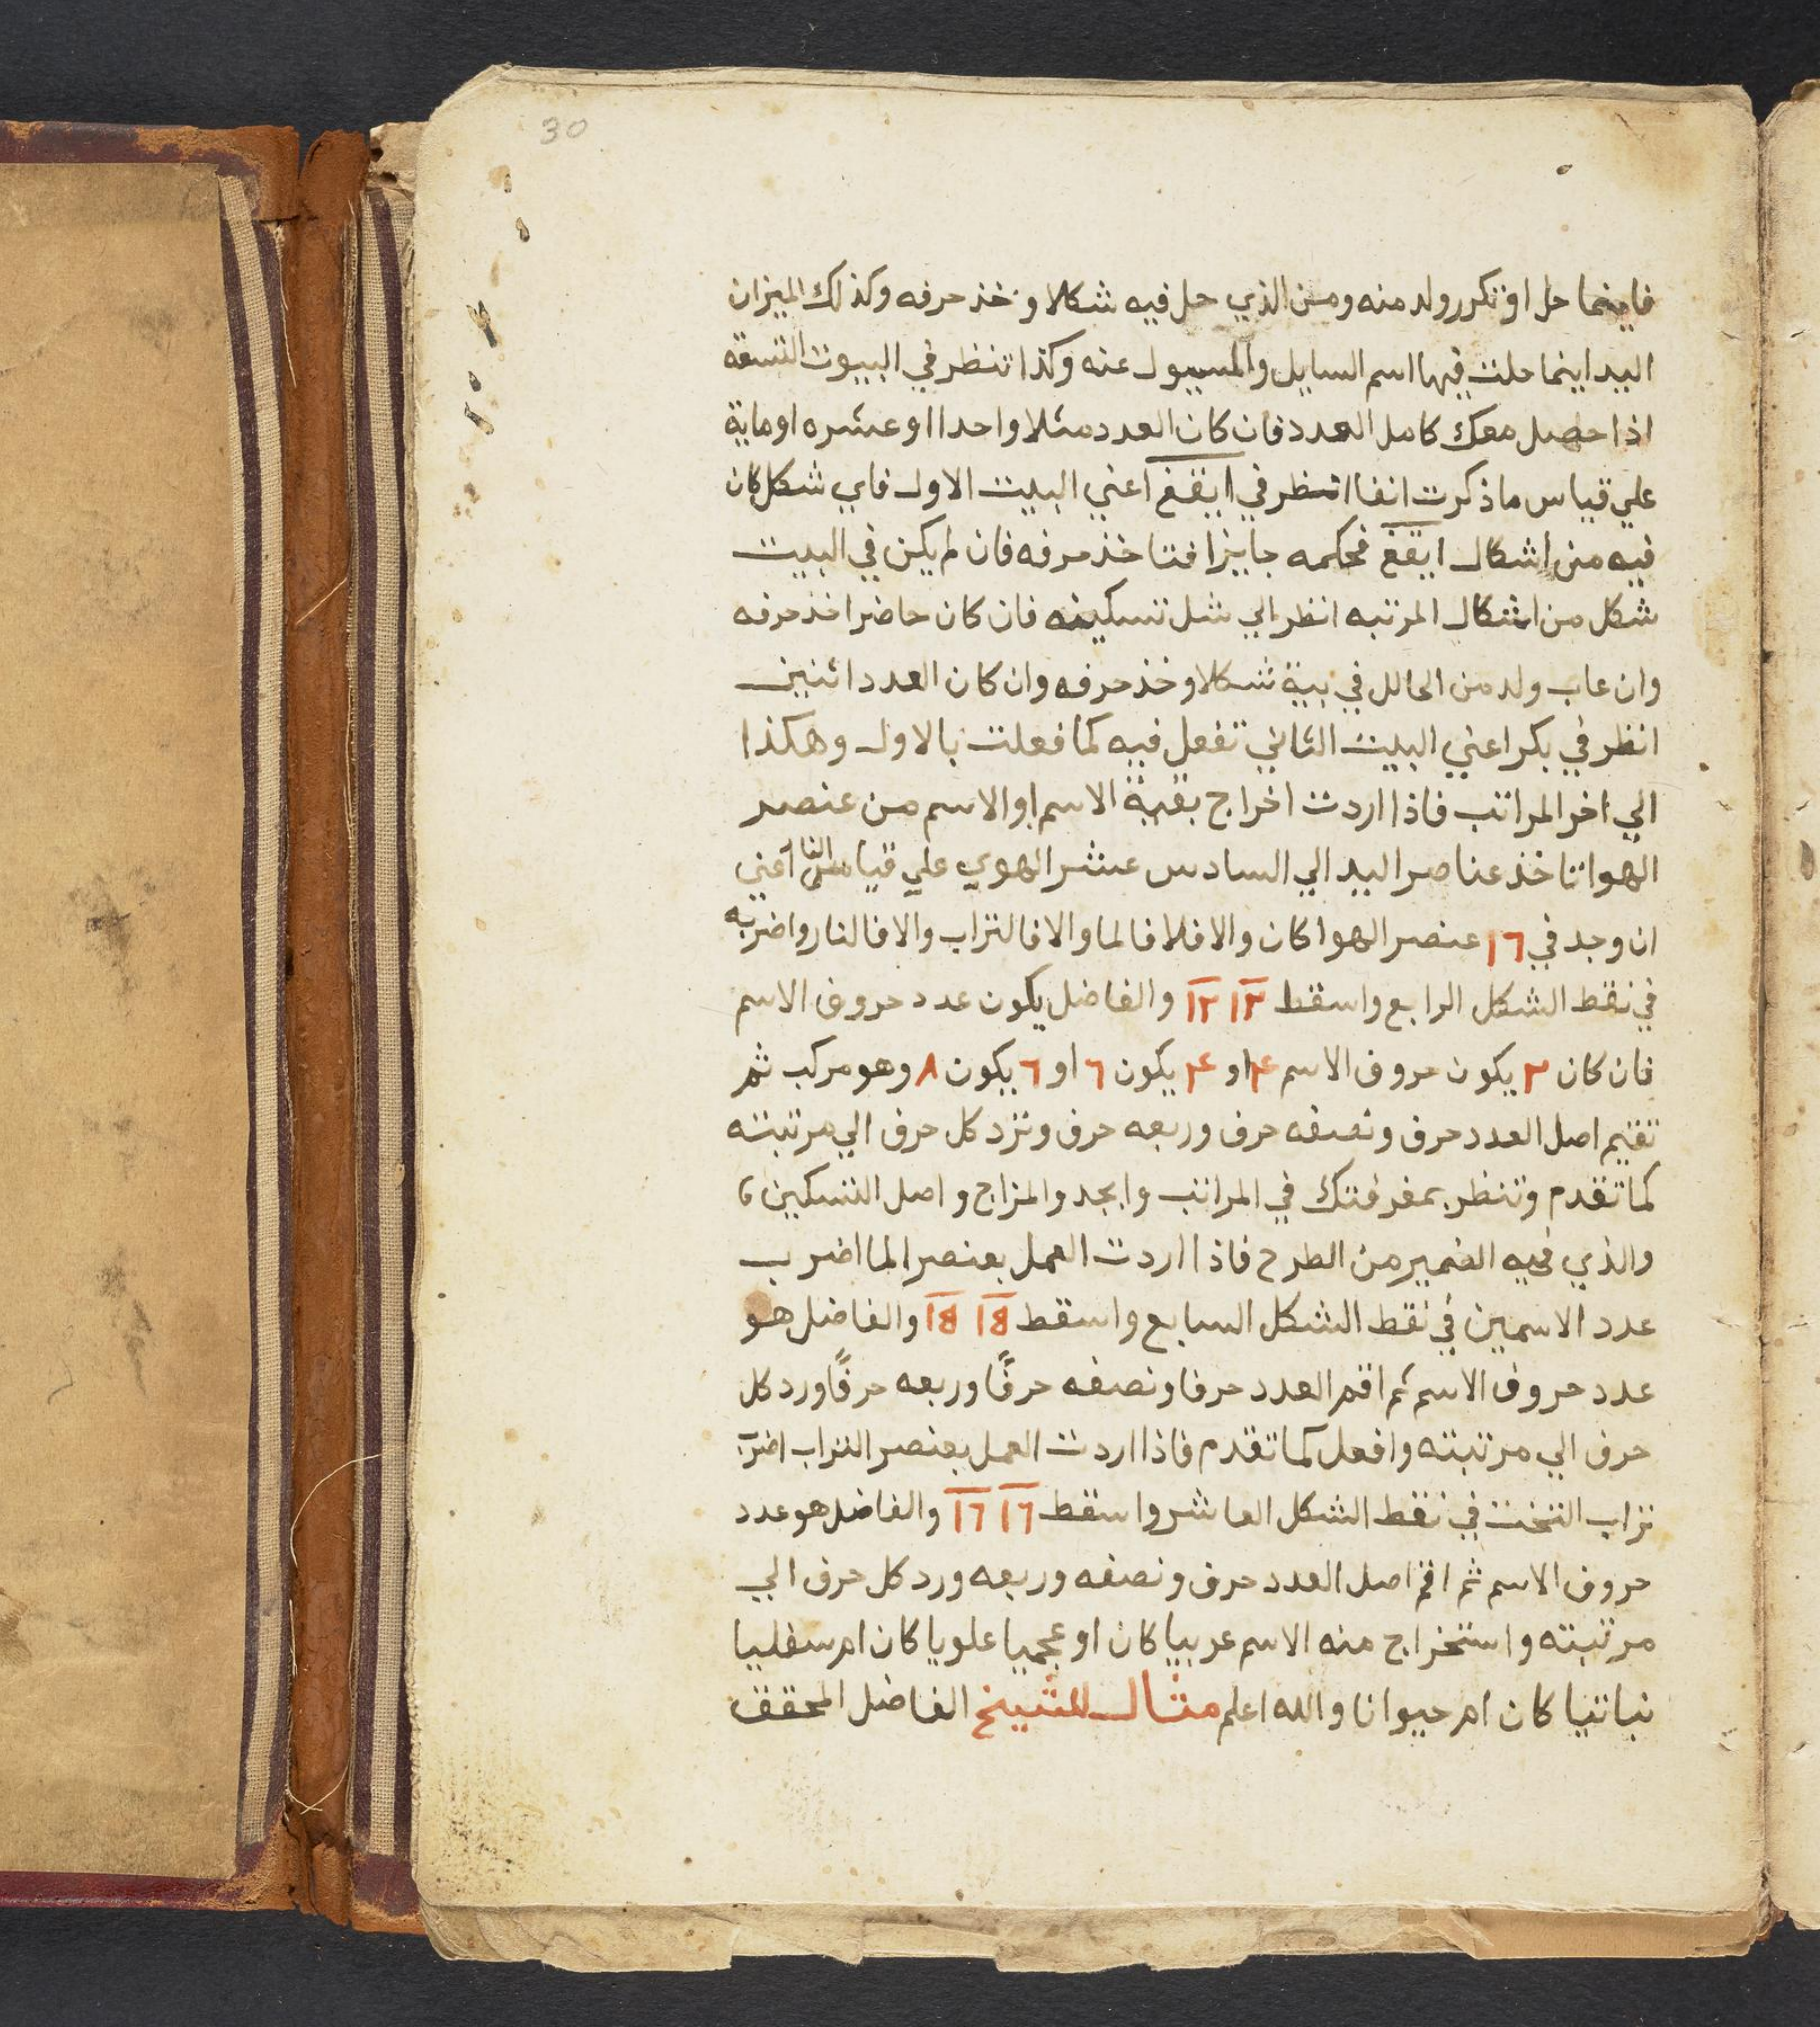 30
فاينما حل او تكرر ولد منه ومن الذي حل فيه شكلا وخذ حرفه وكذلك الميزان
البيد اينما حلت فيها اسم السايل والمسيول عنه وكذا تنظر في البيوت التسعة
اذا حصل معك كامل العدد فان كان العدد مثلا واحدا او عشره او ماية
علي قياس ما ذكرت انفا انظر في ايقغ اعني البيت الاول فاي شكل كان
فيه من اشكال ايقغ فحكمه جايزا فتاخذ حرفه فان لم يكن في البيت
شكل من اشكال المرتبه انظر الي شل تسكينه فان كان حاضرا خذ حرفه
وان غاب ولد من الحالل في بيتة شكلا وخذ حرفه وان كان العدد اثنين
انظر في بكر اعني البيت الثاني تفعل فيه كما فعلت بالاول وهكذا
الي اخر المراتب فاذا اردت اخراج بقية الاسم او الاسم من عنصر
الهوا تاخذ عناصر البيد الي السادس عشر الهوي علي قياس النا اعني
ان وجد في ١٦ عنصر الهوا كان والا فلا فالما والا فالتراب والا فالنار واضربه
في نقط الشكل الرابع واسقط ١٢ ١٢ والفاضل يكون عدد حروف الاسم
فان كان ٢ يكون حروف الاسم ٤ او ٤ يكون ٦ او ٦ يكون ٨ وهو مركب ثم
تقيم اصل العدد حرف ونصفه حرف وربعه حرف وتزد كل حرف الي مرتبته
كما تقدم وتنظر بمعرفتك في المراتب وابجد والمزاج واصل التسكين
والذي فيه الضمير من الطرح فاذا اردت العمل بعنصر الما اضرب
عدد الاسمين في نقط الشكل السابع واسقط ١٤ ١٤ والفاضل هو
عدد حروف الاسم ثم اقم العدد حرفا ونصفه حرفًا وربعه حرفًا ورد كل
حرف الي مرتبته وافعل كما تقدم فاذا اردت العمل بعنصر التراب اضرب
تراب التخت في نقط الشكل العاشر واسقط ١٦ ١٦ والفاضل هو عدد
حروف الاسم ثم اقم اصل العدد حرف ونصفه وربعه ورد كل حرف الي
مرتبته واستخراج منه الاسم عربيا كان او عجميا علويا كان ام سفليا
نباتيا كان ام حيوانا والله اعلم مثال للشيخ الفاضل المحقق